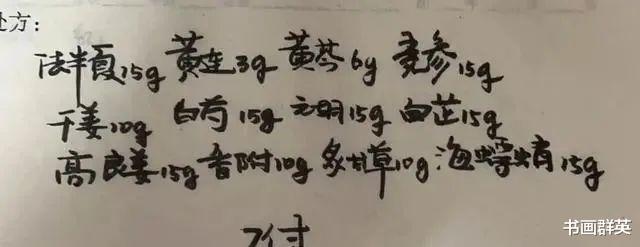 处方:
法半夏15g 黄连3g 黄芩6g 党参15g
干姜10g 白芍15g 元胡15g 白芷15g
高良姜15g 香附10g 炙甘草10g 海螵蛸15g
7付
书画群英